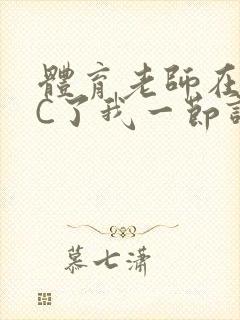 體育老師在
C了我一節
慕七潇